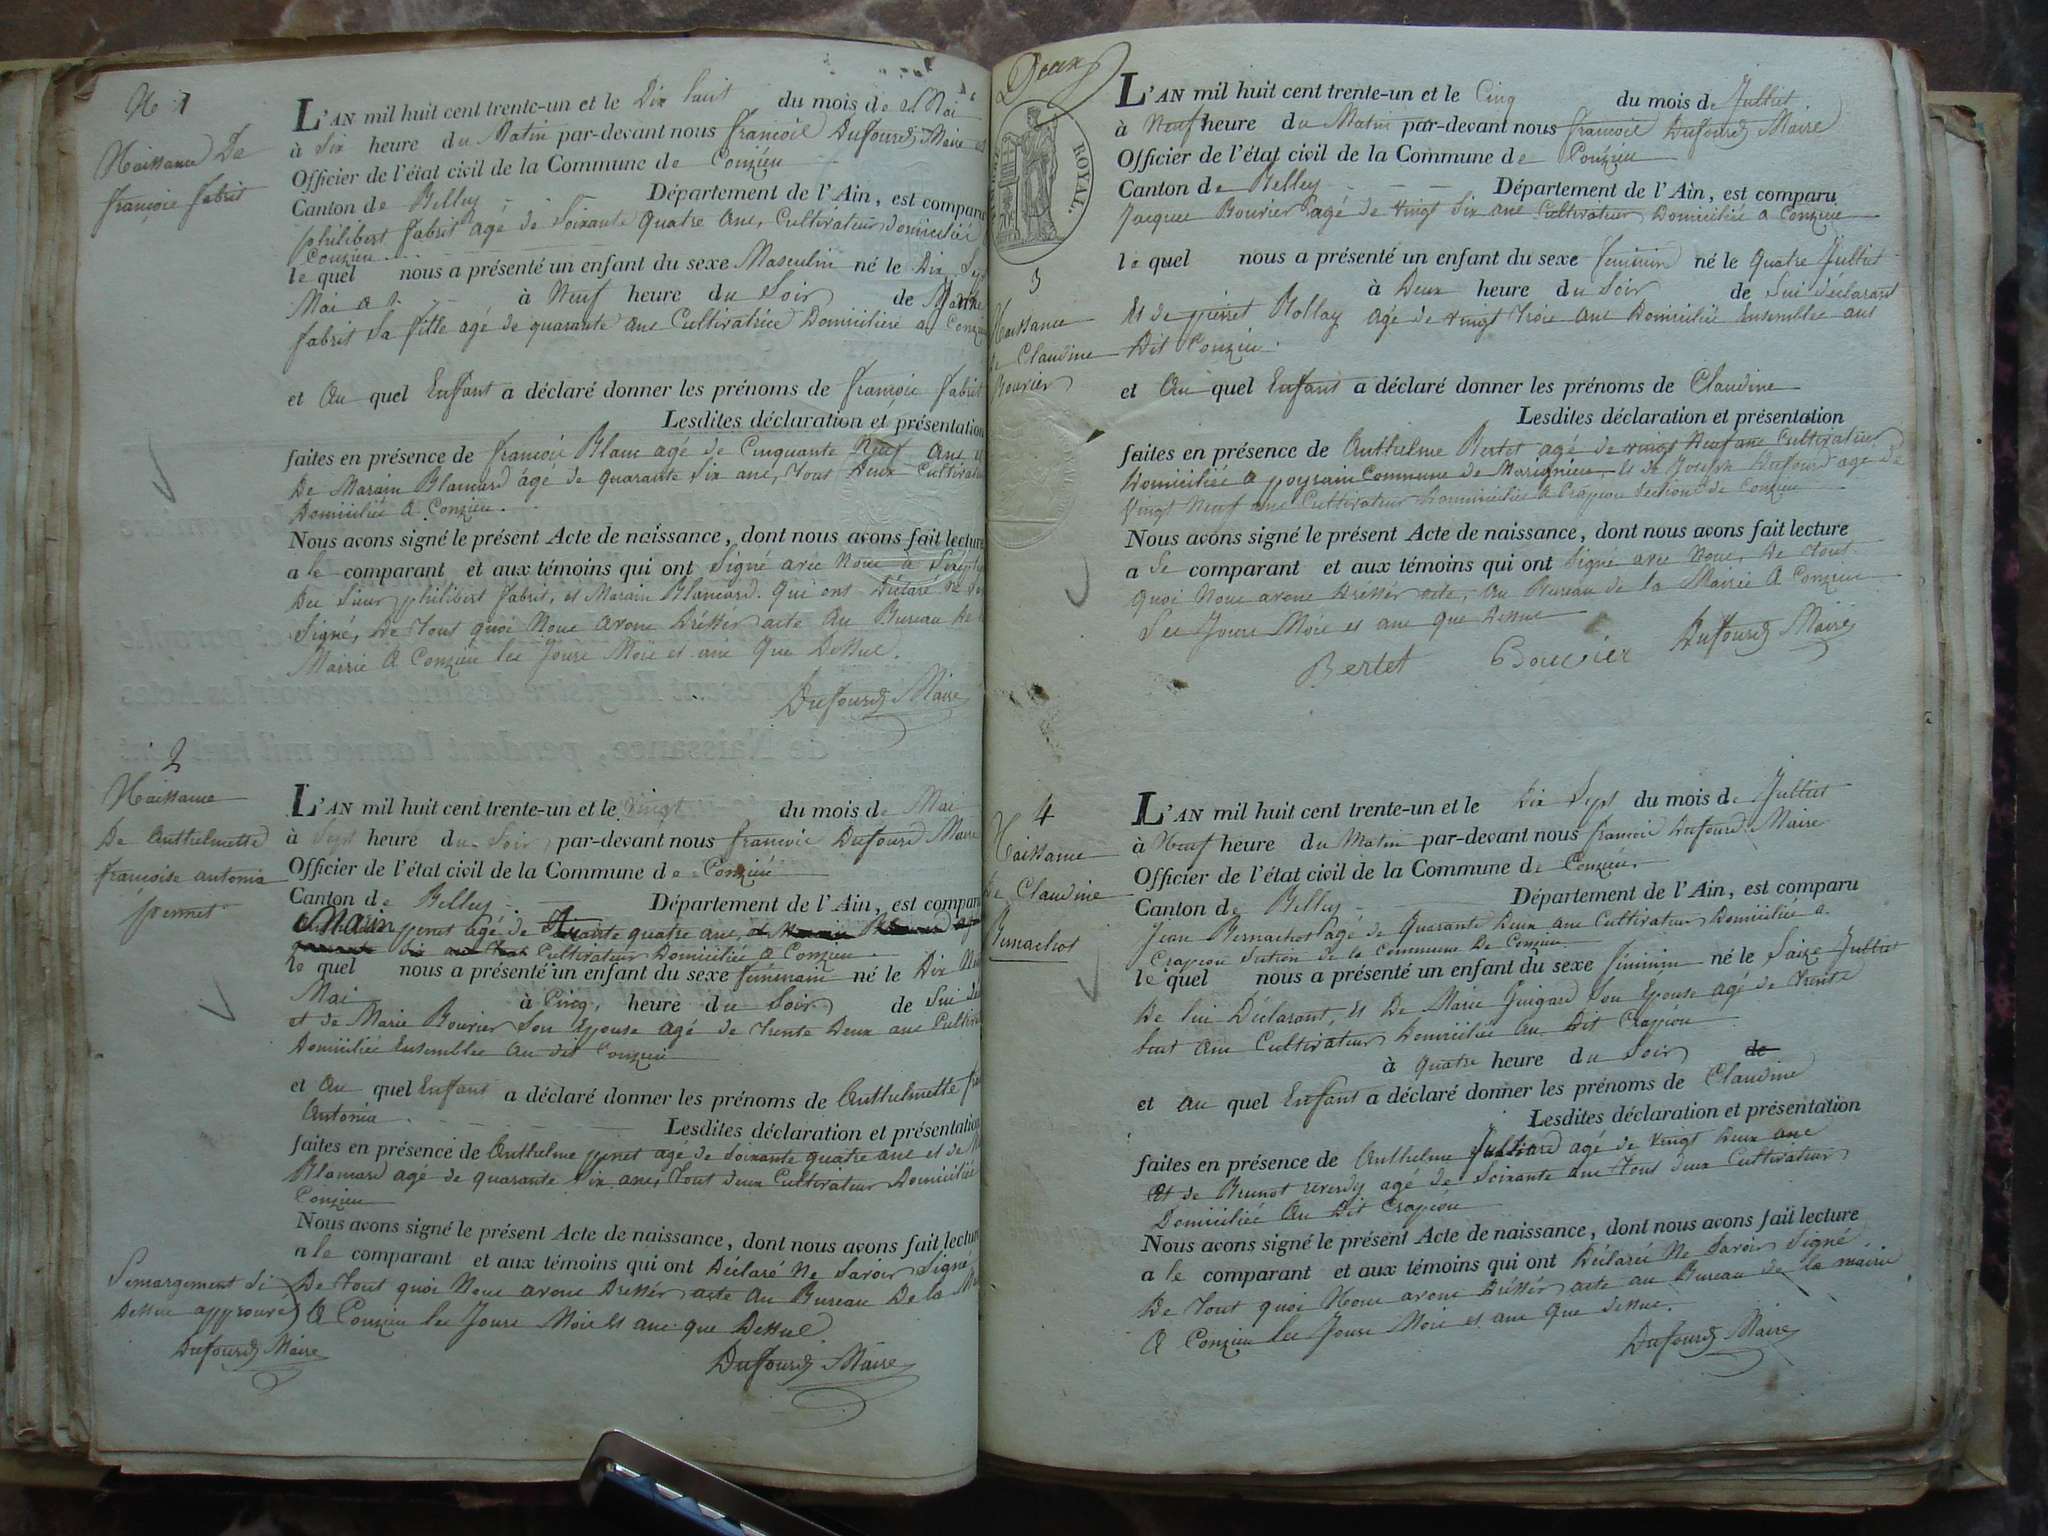 No 1
Naissance De
françois fabrit
L'AN mil huit cent trente-un et le Dix huit du mois de Mai
à Six heure du Matin par-devant nous françois Dufourd Maire et
Officier de l'état civil de la Commune de Conzieu
Canton de Belley Département de l'Ain, est comparu
philibert fabrit agé de Soixante quatre ans, Cultivateur Domicilié
Conzieu
le quel nous a présenté un enfant du sexe Masculin né le Dix Sept
Mai à Neuf heure du Soir de
fabrit Sa fille agé de quarante ans Cultivatrice Domiciliere a Conzieu
et Au quel Enfant a déclaré donner les prénoms de françois fabrit
Lesdites déclaration et présentation
faites en présence de françois Blanc agé de Cinquante Neuf Ans et
De Marain Blancard âgé de quarante Six ans, Tout Deux Cultivateur
Domicilié A Conzieu.
Nous avons signé le présent Acte de naissance, dont nous avons fait lecture
a le comparant et aux témoins qui ont Signé avec Nous a
Des Sieur philibert fabrit, et Marain Blancard. Qui ont Déclaré ne
Signé, De Tout quoi Nous avons Drésser acte Au Bureau de
Mairie A Conzieu les Jours Mois et ans Que Dessus.
Dufourd Maire
2
Naissance
De Anthelmette
françoise antonia
pernet
L'AN mil huit cent trente-un et le vingt du mois de Mai
à Sept heure du Soir, par-devant nous françois Dufourd Maire
Officier de l'état civil de la Commune de Conzieu
Canton de Belley Département de l'Ain, est comparu
agé de quatre ans,
Cultivateur Domicilié A Conzieu
le quel nous a présenté un enfant du sexe féminain né le Dix
Mai à Cinq, heure du Soir de Lui
et de Marie Bouvier Son Epouse agé de Trente Deux ans
Domicilié Ensemble Au dit Conzieu
et Au quel Enfant a déclaré donner les prénoms de Anthelmette
Antonia Lesdites déclaration et présentation
faites en présence de Anthelme agé de Soixante quatre ans et de
Blancard agé de quarante Six ans, Tout Deux Cultivateur Domicilié
Conzieu
Nous avons signé le présent Acte de naissance, dont nous avons fait lecture
a le comparant et aux témoins qui ont Déclaré Ne Savoir Signé
De Tout quoi Nous avons Drésser acte Au Bureau De la
A Conzieu les Jours Mois et ans que Dessus.
Dufourd Maire
Lemargement Si
Dessus approuvé
Dufourd Maire
Deux
ROYAL.
3
Naissance
de Claudine
Bouvier
L'AN mil huit cent trente-un et le Cinq du mois de Julliet
à Neuf heure du Matin par-devant nous françois Dufourd Maire
Officier de l'état civil de la Commune de Conzieu
Canton de Belley Département de l'Ain, est comparu
Jacques Bouvier agé de vingt Six ans Cultivateur Domicilié a Conzieu
le quel nous a présenté un enfant du sexe féminin né le quatre Julliet
à Deux heure du Soir de Lui déclarant
Et de Rollay agé de vingt Trois ans Domicilié Ensemble aus
Dit Conzieu.
et Au quel Enfant a déclaré donner les prénoms de Claudine
Lesdites déclaration et présentation
faites en présence de Anthelme Bertet agé de vingt Neuf ans Cultivateur
Domicilié A Commune de Et de Joseph Dufourd agé de
Vingt Neuf ans Cultivateur Domicilié A Crapeou Section de Conzieu
Nous avons signé le présent Acte de naissance, dont nous avons fait lecture
a Le comparant et aux témoins qui ont Signé avec Nous, De Tout
Quoi Nous avons Drésser acte, Au Bureau de la Mairie A Conzieu
Les Jours Mois et ans que Dessus
Bertet Bouvier Dufourd Maire
4
Naissance
De Claudine
Bernachot
L'AN mil huit cent trente-un et le Dix Sept du mois de Julliet
à Neuf heure du Matin par-devant nous françois Dufourd Maire
Officier de l'état civil de la Commune de Conzieu.
Canton de Belley Département de l'Ain, est comparu
Jean Bernachot agé de Quarante Deux ans Cultivateur Domicilié a
Crapeou Section de la Commune De Conzieu
le quel nous a présenté un enfant du sexe féminin né le Saize Julliet
De lui Déclarant, Et De Marie Guigard Son Epouse agé de Trente
huit ans Cultivateur Domicilié Au Dit Crapeou
à quatre heure du Soir de
et au quel Enfant a déclaré donner les prénoms de Claudine
Lesdites déclaration et présentation
faites en présence de Anthelme Julliard agé de vingt Deux ans
Et de Brunot reverdy agé de Soixante ans Tout Deux Cultivateur
Domicilié Au Dit Crapeou
Nous avons signé le présent Acte de naissance, dont nous avons fait lecture
a le comparant et aux témoins qui ont Déclaré Ne Savoir Signé.
De Tout quoi Nous avons Drésser acte au Bureau de la mairie
A Conzieu les Jours Mois et ans Que dessus.
Dufourd Maire